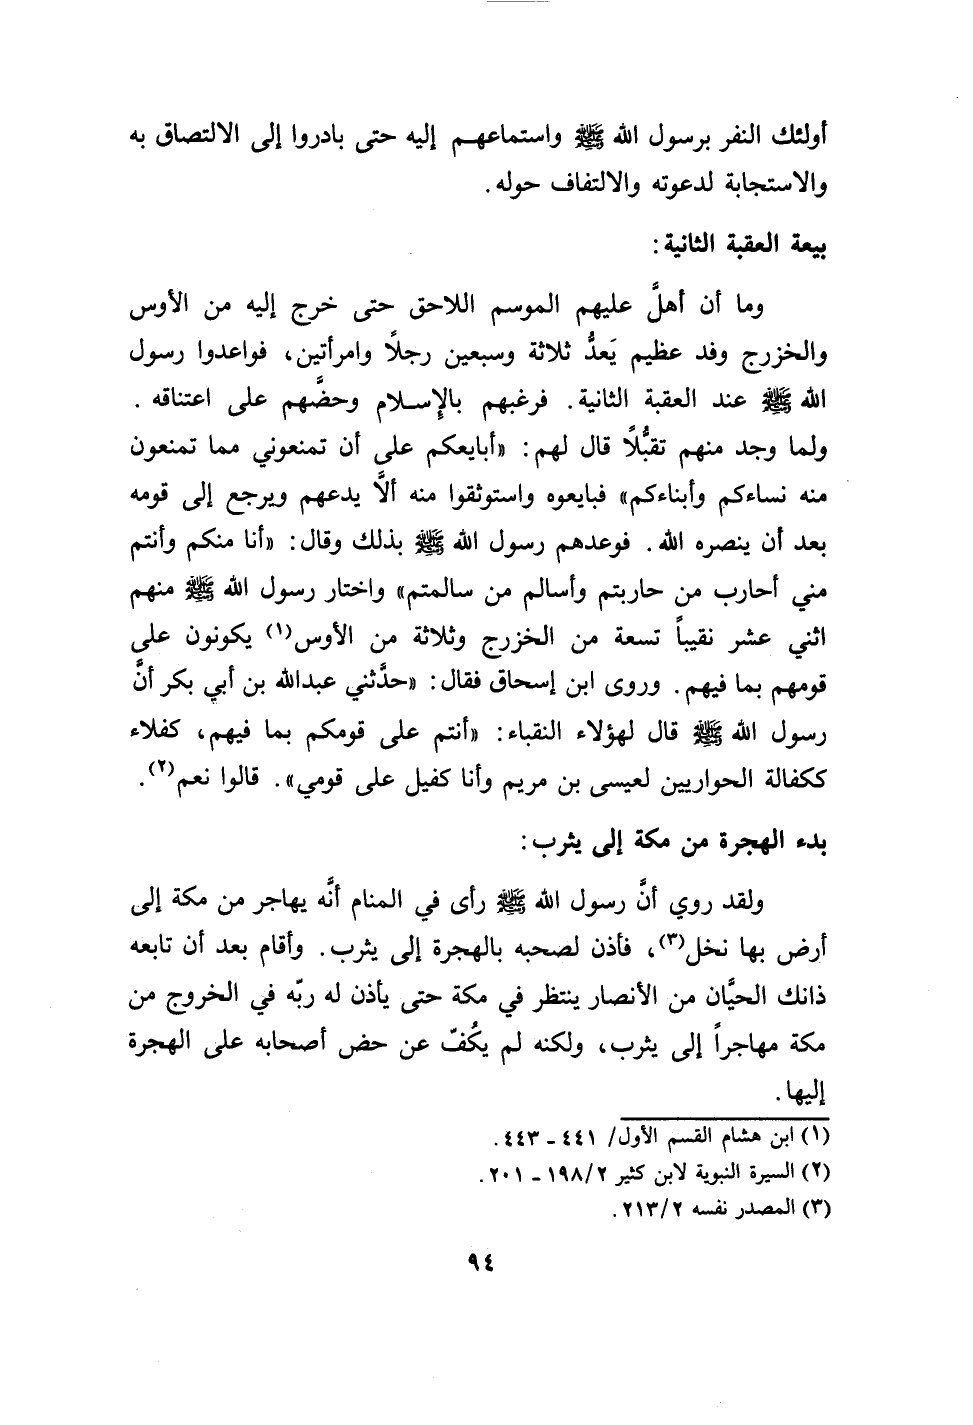 أولئك النفر برسول الله ﷺ واستماعهم إليه حتى بادروا إلى الالتصاق به
والاستجابة لدعوته والالتفاف حوله.
بيعة العقبة الثانية:
وما أن أهلَّ عليهم الموسم اللاحق حتى خرج إليه من الأوس
والخزرج وفد عظيم يَعدُّ ثلاثة وسبعين رجلاً وامرأتين، فواعدوا رسول
الله ﷺ عند العقبة الثانية. فرغبهم بالإسلام وحضَّهم على اعتناقه.
ولما وجد منهم تقبُّلاً قال لهم: «أبايعكم على أن تمنعوني مما تمنعون
منه نساءكم وأبناءكم» فبايعوه واستوثقوا منه ألاَّ يدعهم ويرجع إلى قومه
بعد أن ينصره الله. فوعدهم رسول الله ﷺ بذلك وقال: «أنا منكم وأنتم
مني أحارب من حاربتم وأسالم من سالمتم» واختار رسول الله ﷺ منهم
اثني عشر نقيباً تسعة من الخزرج وثلاثة من الأوس(١) يكونون على
قومهم بما فيهم. وروى ابن إسحاق فقال: «حدَّثني عبدالله بن أبي بكر أنَّ
رسول الله ﷺ قال لهؤلاء النقباء: «أنتم على قومكم بما فيهم، كفلاء
ككفالة الحواريين لعيسى بن مريم وأنا كفيل على قومي». قالوا نعم(٢).
بدء الهجرة من مكة إلى يثرب:
ولقد روي أنَّ رسول الله ﷺ رأى في المنام أنَّه يهاجر من مكة إلى
أرض بها نخل(٣)، فأذن لصحبه بالهجرة إلى يثرب. وأقام بعد أن تابعه
ذانك الحيَّان من الأنصار ينتظر في مكة حتى يأذن له ربّه في الخروج من
مكة مهاجراً إلى يثرب، ولكنه لم يكُفّ عن حض أصحابه على الهجرة
إليها.
(١) ابن هشام القسم الأول/ ٤٤١ - ٤٤٣.
(٢) السيرة النبوية لابن كثير ١٩٨/٢ - ٢٠١.
(٣) المصدر نفسه ٢١٣/٢.
٩٤